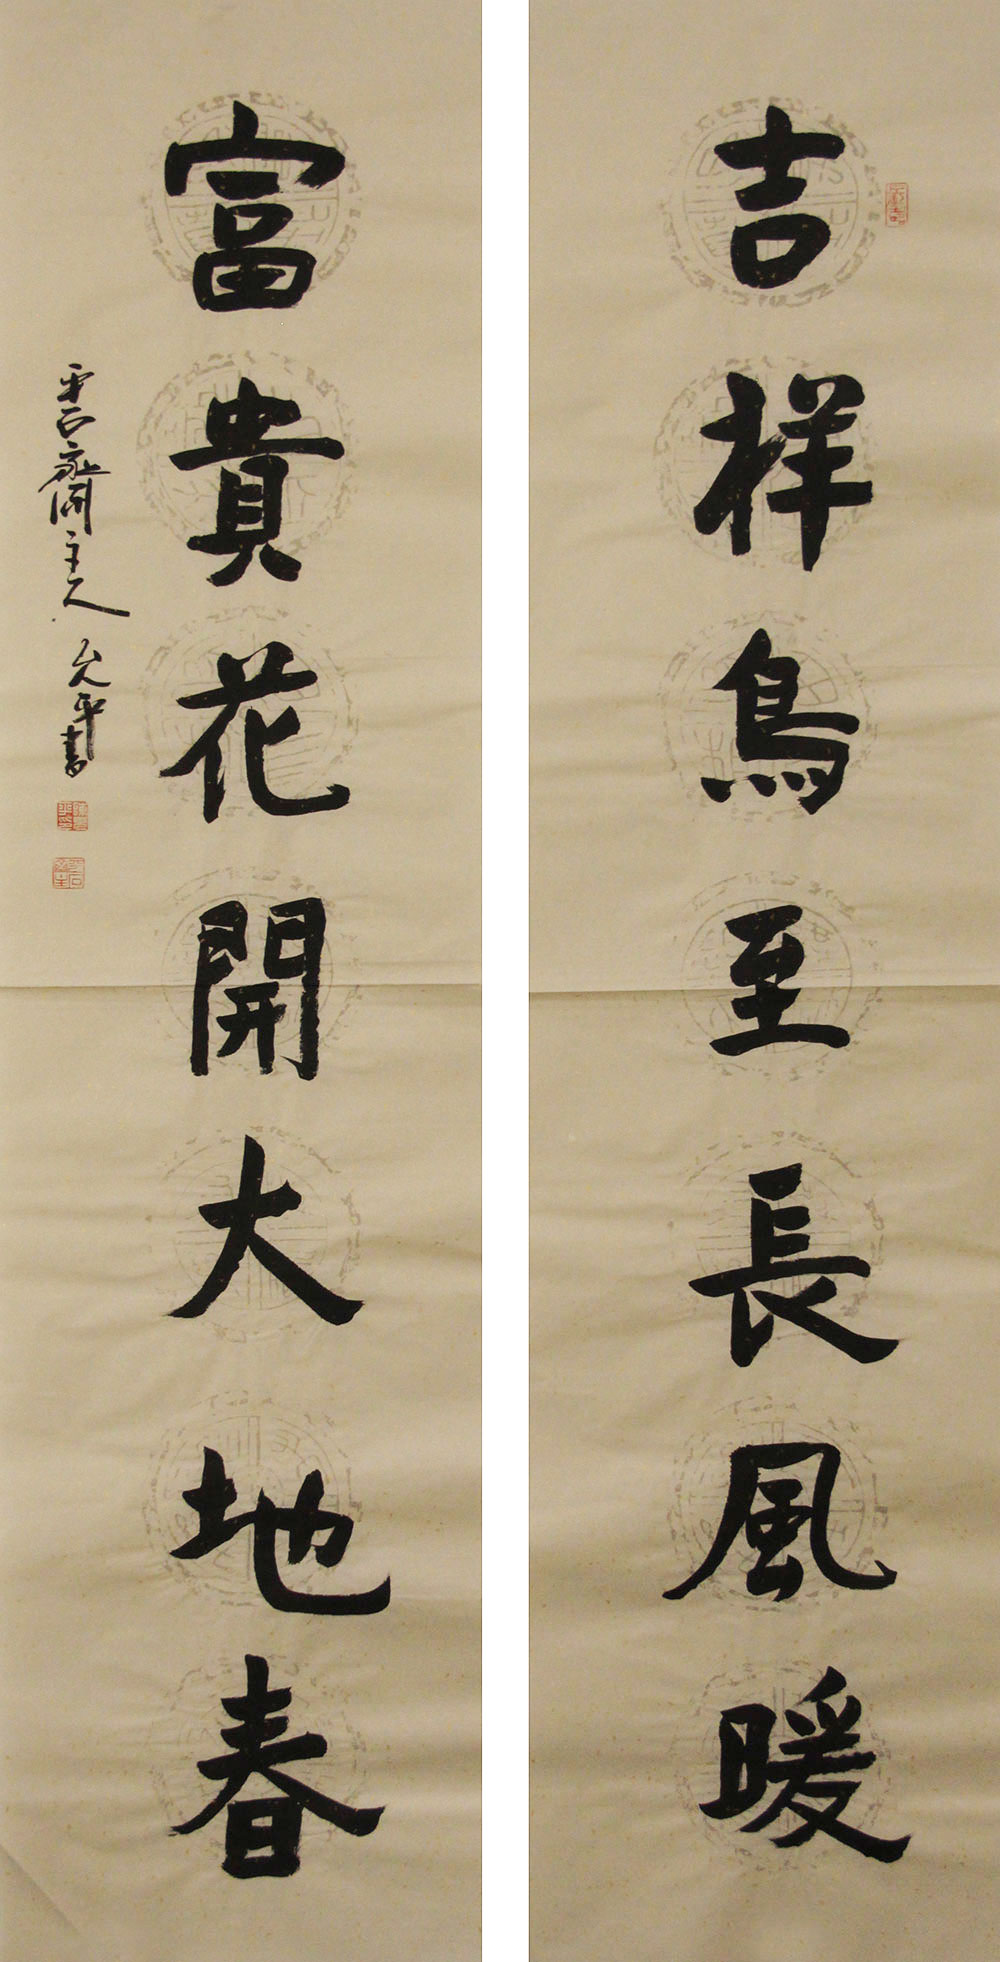 吉祥鳥至長風暖
富貴花開大地春
平石齋主人允平書